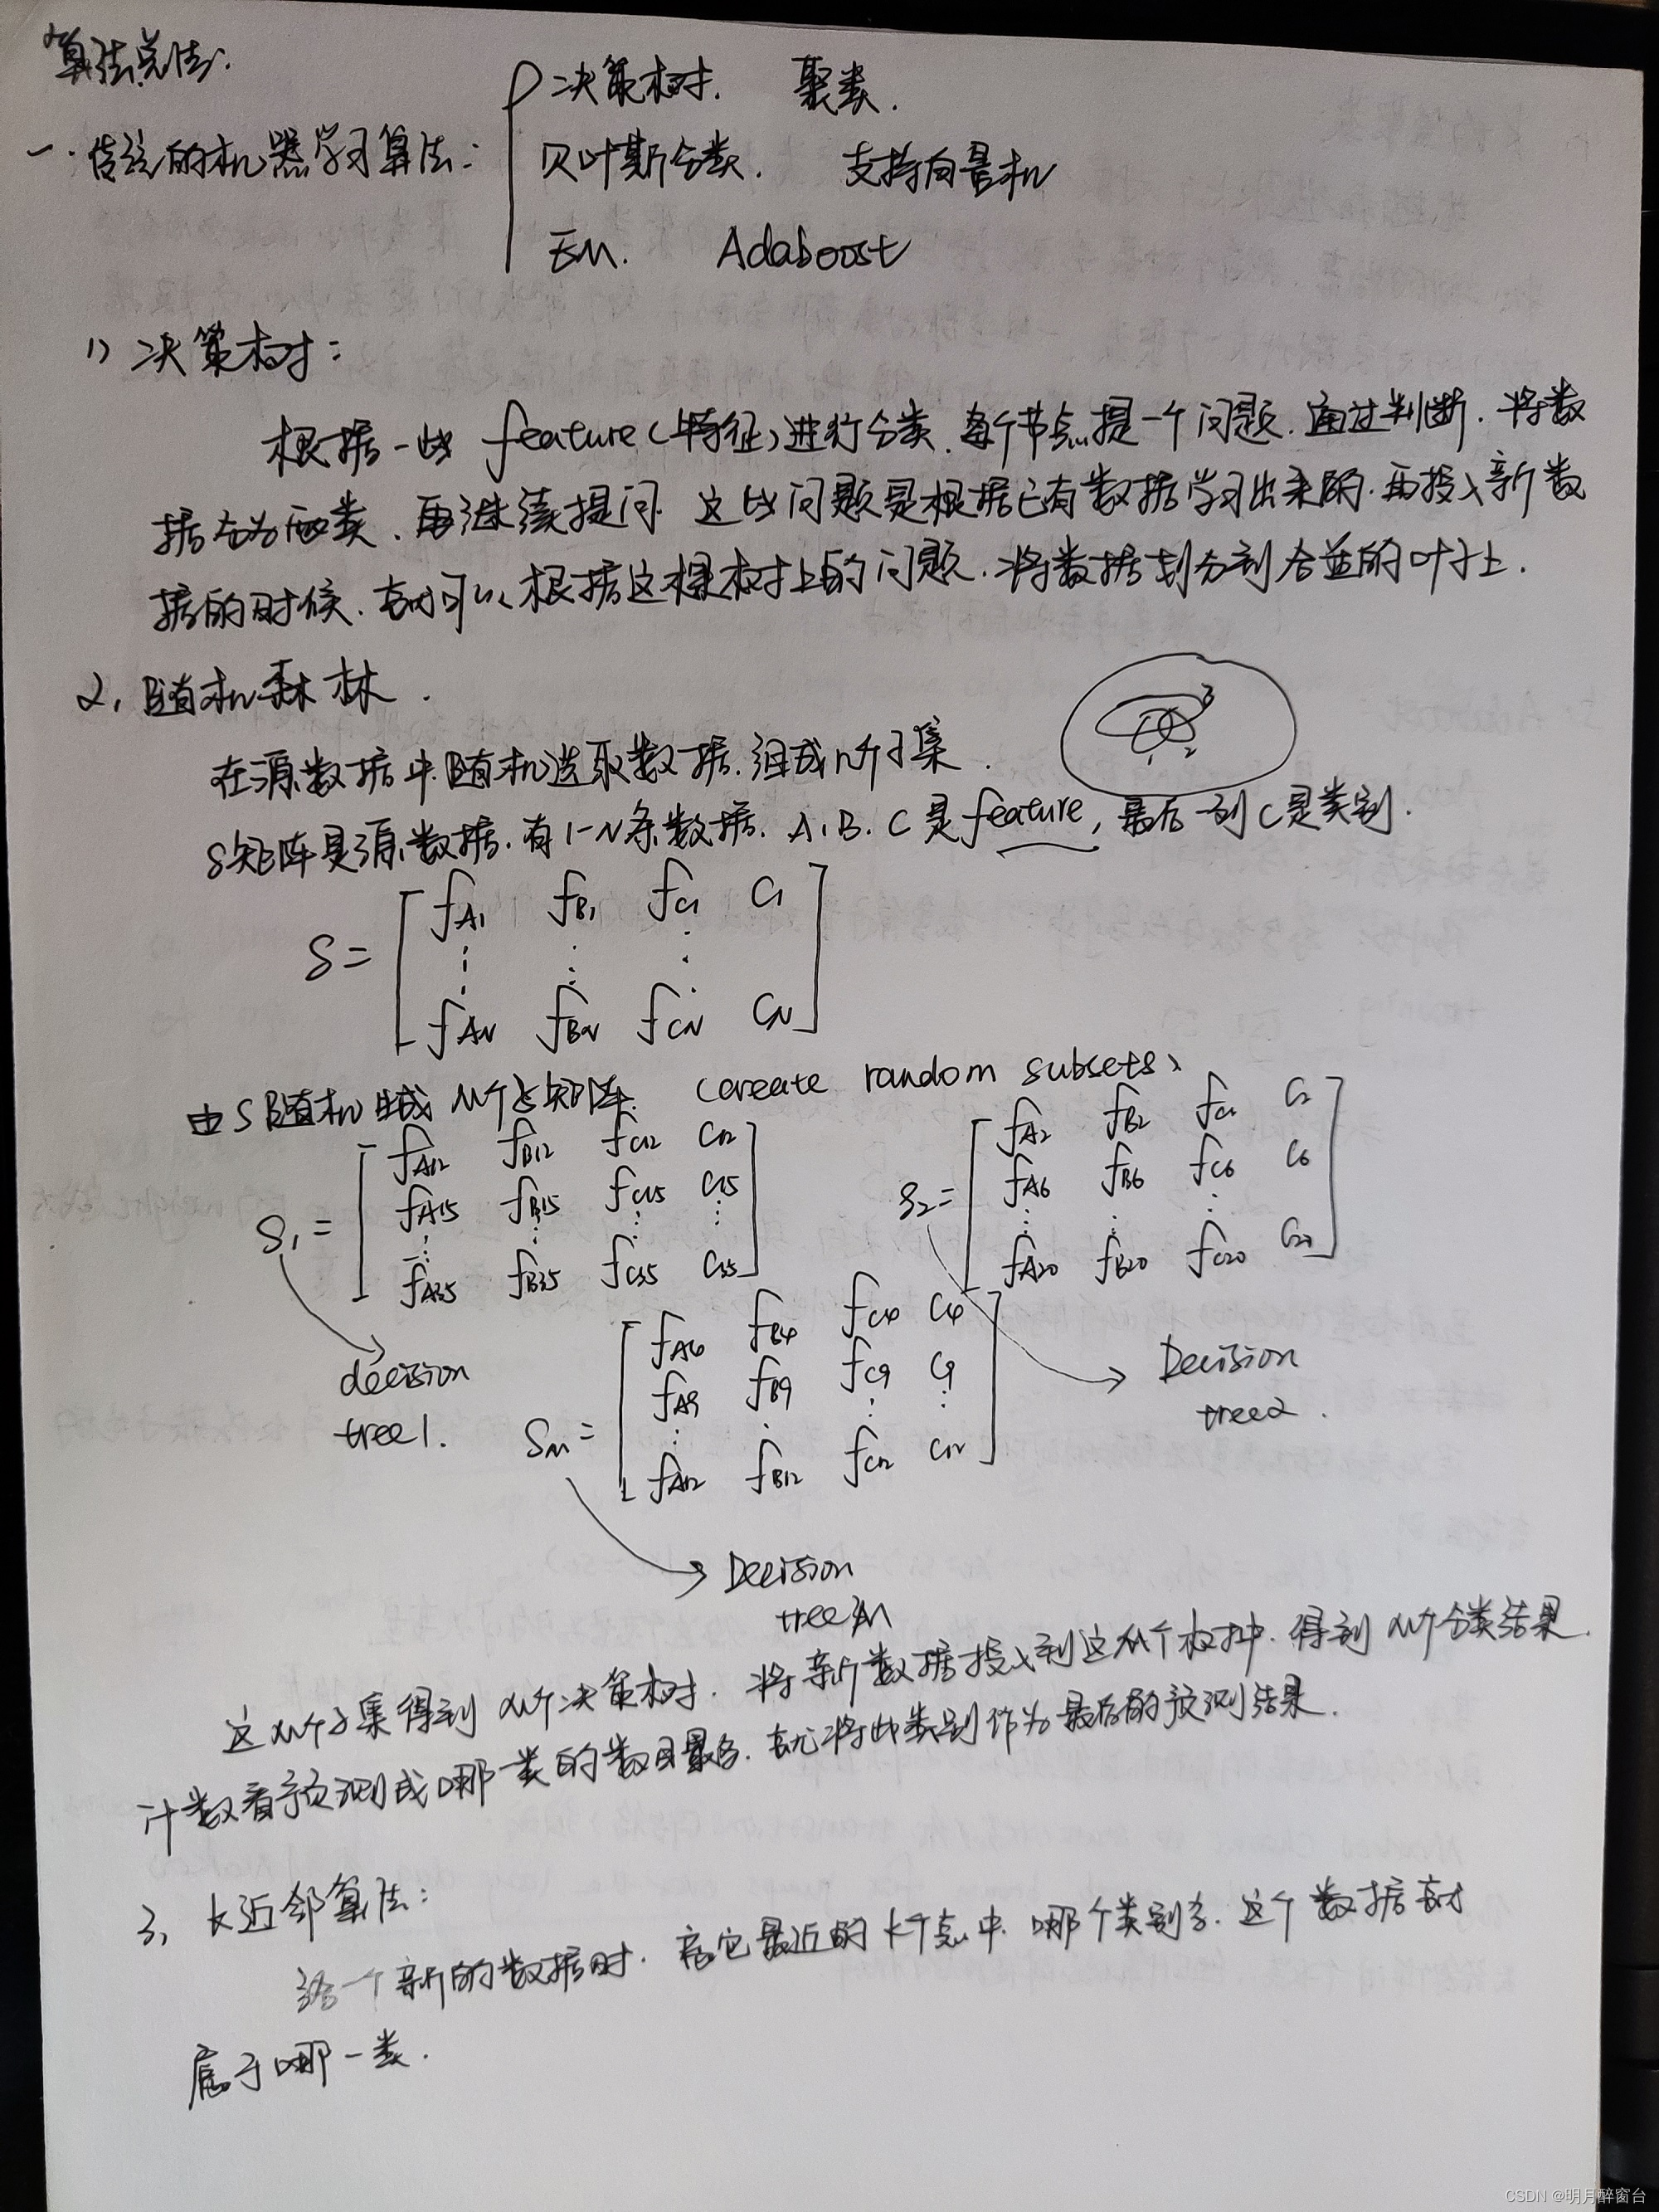 算法总法:
一. 传统的机器学习算法: 决策树. 聚类.
贝叶斯分类. 支持向量机
EM. Adaboost
1) 决策树:
根据一些feature(特征)进行分类. 每个节点提一个问题. 通过判断. 将数
据分为两类. 再继续提问. 这些问题是根据已有数据学习出来的. 再投入新数
据的时候. 就可以根据这棵树上的问题. 将数据划分到合适的叶子上.
2, 随机森林.
在源数据中随机选取数据. 组成n个子集.
3
1 2
S矩阵是源数据. 有1-N条数据. A. B. C是feature, 最后一列C是类别.
S= [ fA1 fB1 fC1 C1
⋮ ⋮ ⋮
fAN fBN fCN CN ]
由S随机生成M个子矩阵. (create random subsets)
S1= [ fA12 fB12 fC12 C12
fA15 fB15 fC15 C15
⋮ ⋮ ⋮ ⋮
fA35 fB35 fC35 C35 ]
decision
tree1.
S2= [ fA2 fB2 fC2 C2
fA6 fB6 fC6 C6
⋮ ⋮ ⋮
fA20 fB20 fC20 C20 ]
Decision
tree2.
SM= [ fA4 fB4 fC4 C4
fA9 fB9 fC9 C9
⋮ ⋮ ⋮ ⋮
fA12 fB12 fC12 C12 ]
Decision
treeM
这M个子集得到M个决策树. 将新数据投入到这M个树中. 得到M个分类结果.
计数看预测成哪一类的数目最多. 就将此类别作为最后的预测结果.
3, k近邻算法:
给一个新的数据时. 离它最近的k个点中. 哪个类别多. 这个数据就
属于哪一类.
CSDN @明月醉窗台